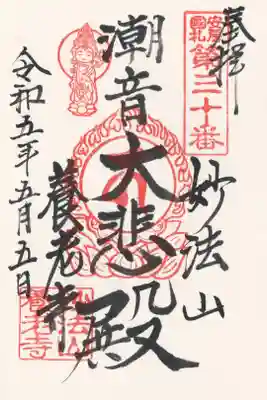 奉拝
安房國札
第三十番
妙法山
潮音
大悲殿
養老寺
令和五年五月五日
妙法山
養老寺